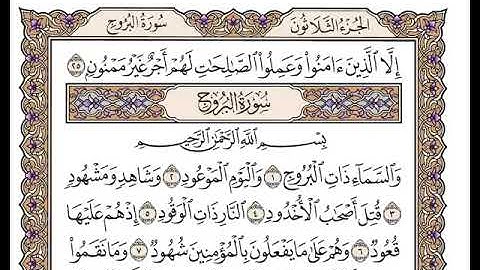 سُورَةُ البُرُوجِ
الجُزْءُ الثَّلَاثُونَ
إِلَّا ٱلَّذِينَ ءَامَنُوا۟ وَعَمِلُوا۟ ٱلصَّٰلِحَٰتِ لَهُمْ أَجْرٌ غَيْرُ مَمْنُونٍۭ ٢٥
سُورَةُ البُرُوجِ
بِسْمِ ٱللَّهِ ٱلرَّحْمَٰنِ ٱلرَّحِيمِ
وَٱلسَّمَآءِ ذَاتِ ٱلْبُرُوجِ ١ وَٱلْيَوْمِ ٱلْمَوْعُودِ ٢ وَشَاهِدٍ وَمَشْهُودٍ
٣ قُتِلَ أَصْحَٰبُ ٱلْأُخْدُودِ ٤ ٱلنَّارِ ذَاتِ ٱلْوَقُودِ ٥ إِذْ هُمْ عَلَيْهَا
قُعُودٌ ٦ وَهُمْ عَلَىٰ مَا يَفْعَلُونَ بِٱلْمُؤْمِنِينَ شُهُودٌ ٧ وَمَا نَقَمُوا۟